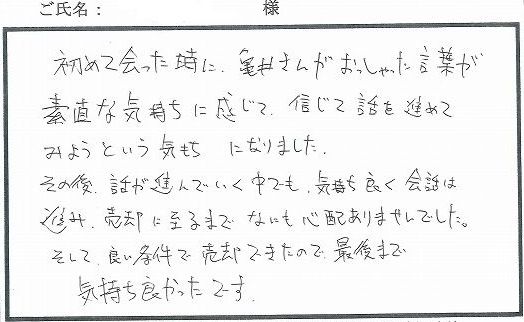 ご氏名: 様
初めて会った時に、亀井さんがおっしゃった言葉が
素直な気持ちに感じて、信じて話を進めて
みようという気もち になりました。
その後、話が進んでいく中でも、気持ち良く会話は
進み、売却に至るまで ないも心配ありませんでした。
そして、良い条件で売却できたので、最後まで
気持ち良かったです。